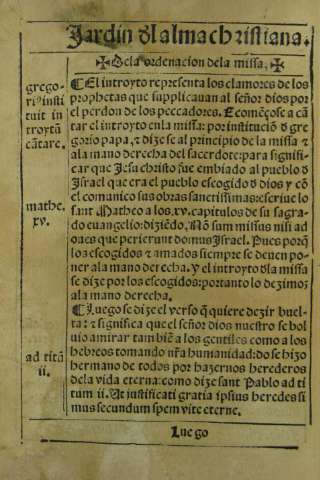 Jardin dl alma christiana.
✠ De la ordenacion dela missa, ✠
grego-
ri⁹ insti
tuit in
troytũ
cãtare.
¶ El introyto representa los clamores de los
prophetas que supplicauan al señor dios por
el perdon de los peccadores. E començose a cã
tar el introyto enla missa: por instituciõ d gre
gorio papa, ⁊ dize se al principio de la missa ⁊
ala mano derecha del sacerdote: para signifi-
car que Jesu christo fue embiado al pueblo d
Israel que era el pueblo escogido d dios y cõ
el comunico sus obras sanctissimas: escriue lo
mathe.
xv.
sant Matheo a los .xv. capitulos de su sagra-
do euangelio: diziẽdo. Nõ sum missus nisi ad
oues que perierunt domus Israel. Pues porq̃
los escogidos ⁊ amados siempre se deuen po-
ner ala mano derecha. y el introyto dla missa
se dize por los escogidos: portanto lo dezimos
ala mano derecha.
¶ Luego se dize el verso q̃ quiere dezir buel-
ta: ⁊ significa que el señor dios nuestro se bol
uio amirar tambiẽ a los gentiles como a los
hebreos tomando nr̃a humanidad: do se hizo
hermano de todos por hazernos herederos
ad titũ
ii.
dela vida eterna: como dize sant Pablo ad ti
tum ii. Ut iustificati gratia ipsius heredes si
mus secundum spem vite eterne.
Luego